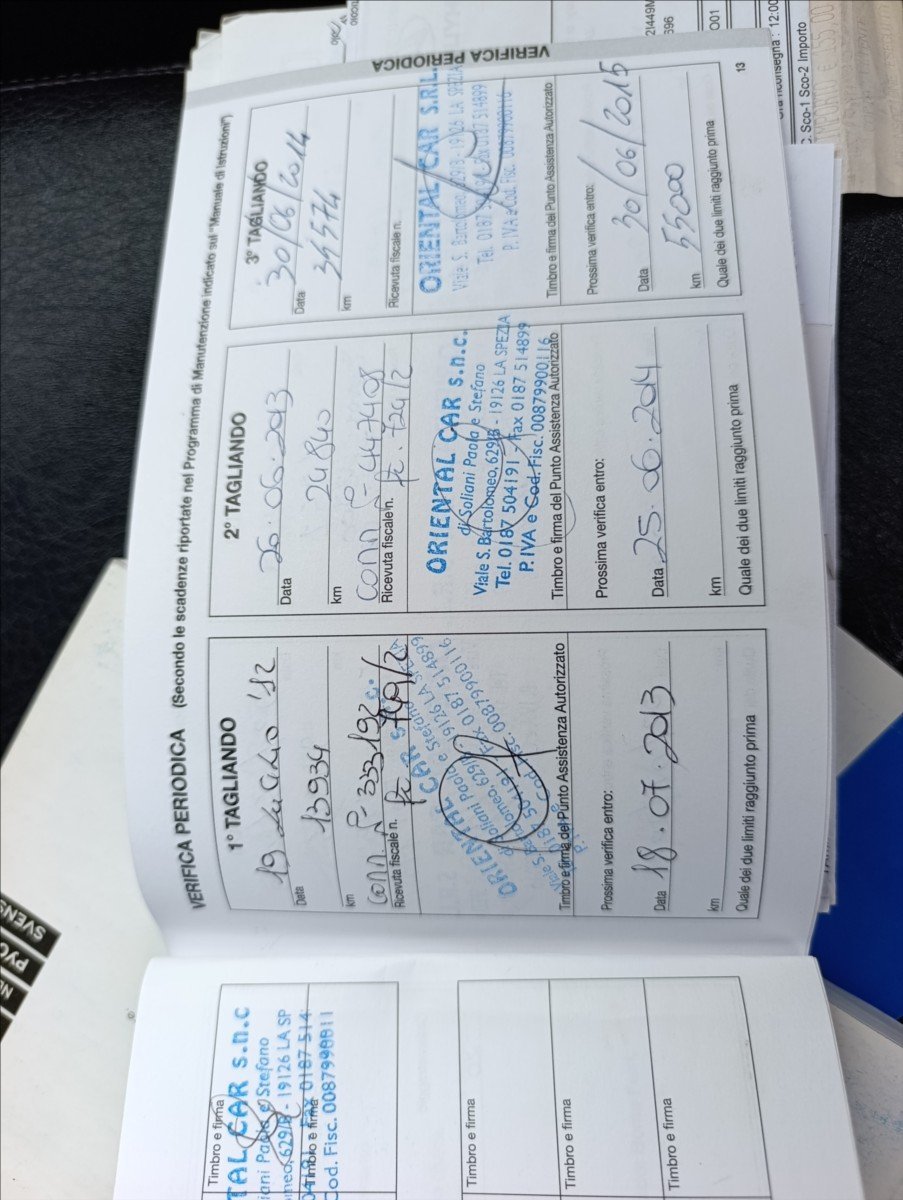 VERIFICA PERIODICA (Secondo le scadenze riportate nel Programma di Manutenzione indicato sul "Manuale di Istruzioni")
1° TAGLIANDO
19 LUGLIO '12
Data
13934
km
333192
Ricevuta fiscale n.
749/2
ORIENTAL CAR s.n.c.
di Soliani Paola e Stefano
Viale S. Bartolomeo, 629/B - 19126 LA SPEZIA
Tel. 0187 504191 - Fax 0187 514899
P. IVA e Cod. Fisc. 00879900116
Timbro e firma del Punto Assistenza Autorizzato
Prossima verifica entro:
Data 18.07.2013
km
Quale dei due limiti raggiunto prima
2° TAGLIANDO
26.06.2013
Data
24840
km
447408
Ricevuta fiscale n.
724/2
ORIENTAL CAR s.n.c.
di Soliani Paola e Stefano
Viale S. Bartolomeo, 629/B - 19126 LA SPEZIA
Tel. 0187 504191 - Fax 0187 514899
P. IVA e Cod. Fisc. 00879900116
Timbro e firma del Punto Assistenza Autorizzato
Prossima verifica entro:
Data 25.06.2014
km
Quale dei due limiti raggiunto prima
3° TAGLIANDO
30/06/2014
Data
34574
km
Ricevuta fiscale n.
ORIENTAL CAR S.R.L.
Viale S. Bartolomeo, 629/B - 19126 LA SPEZIA
Tel. 0187 504191 Fax 0187 514899
P. IVA e Cod. Fisc. 00879900116
Timbro e firma del Punto Assistenza Autorizzato
Prossima verifica entro:
30/06/2015
Data
55000
km
Quale dei due limiti raggiunto prima
13
VERIFICA PERIODICA
Timbro e firma
TAL CAR s.n.c
iani Paola e Stefano
omeo, 629/B - 19126 LA SP
Timbro e firma
Fax 0187 514
Cod. Fisc.
Timbro e firma
Timbro e firma
Timbro e firma
SVENS
Sco-1 Sco-2 Importo
: 12:00